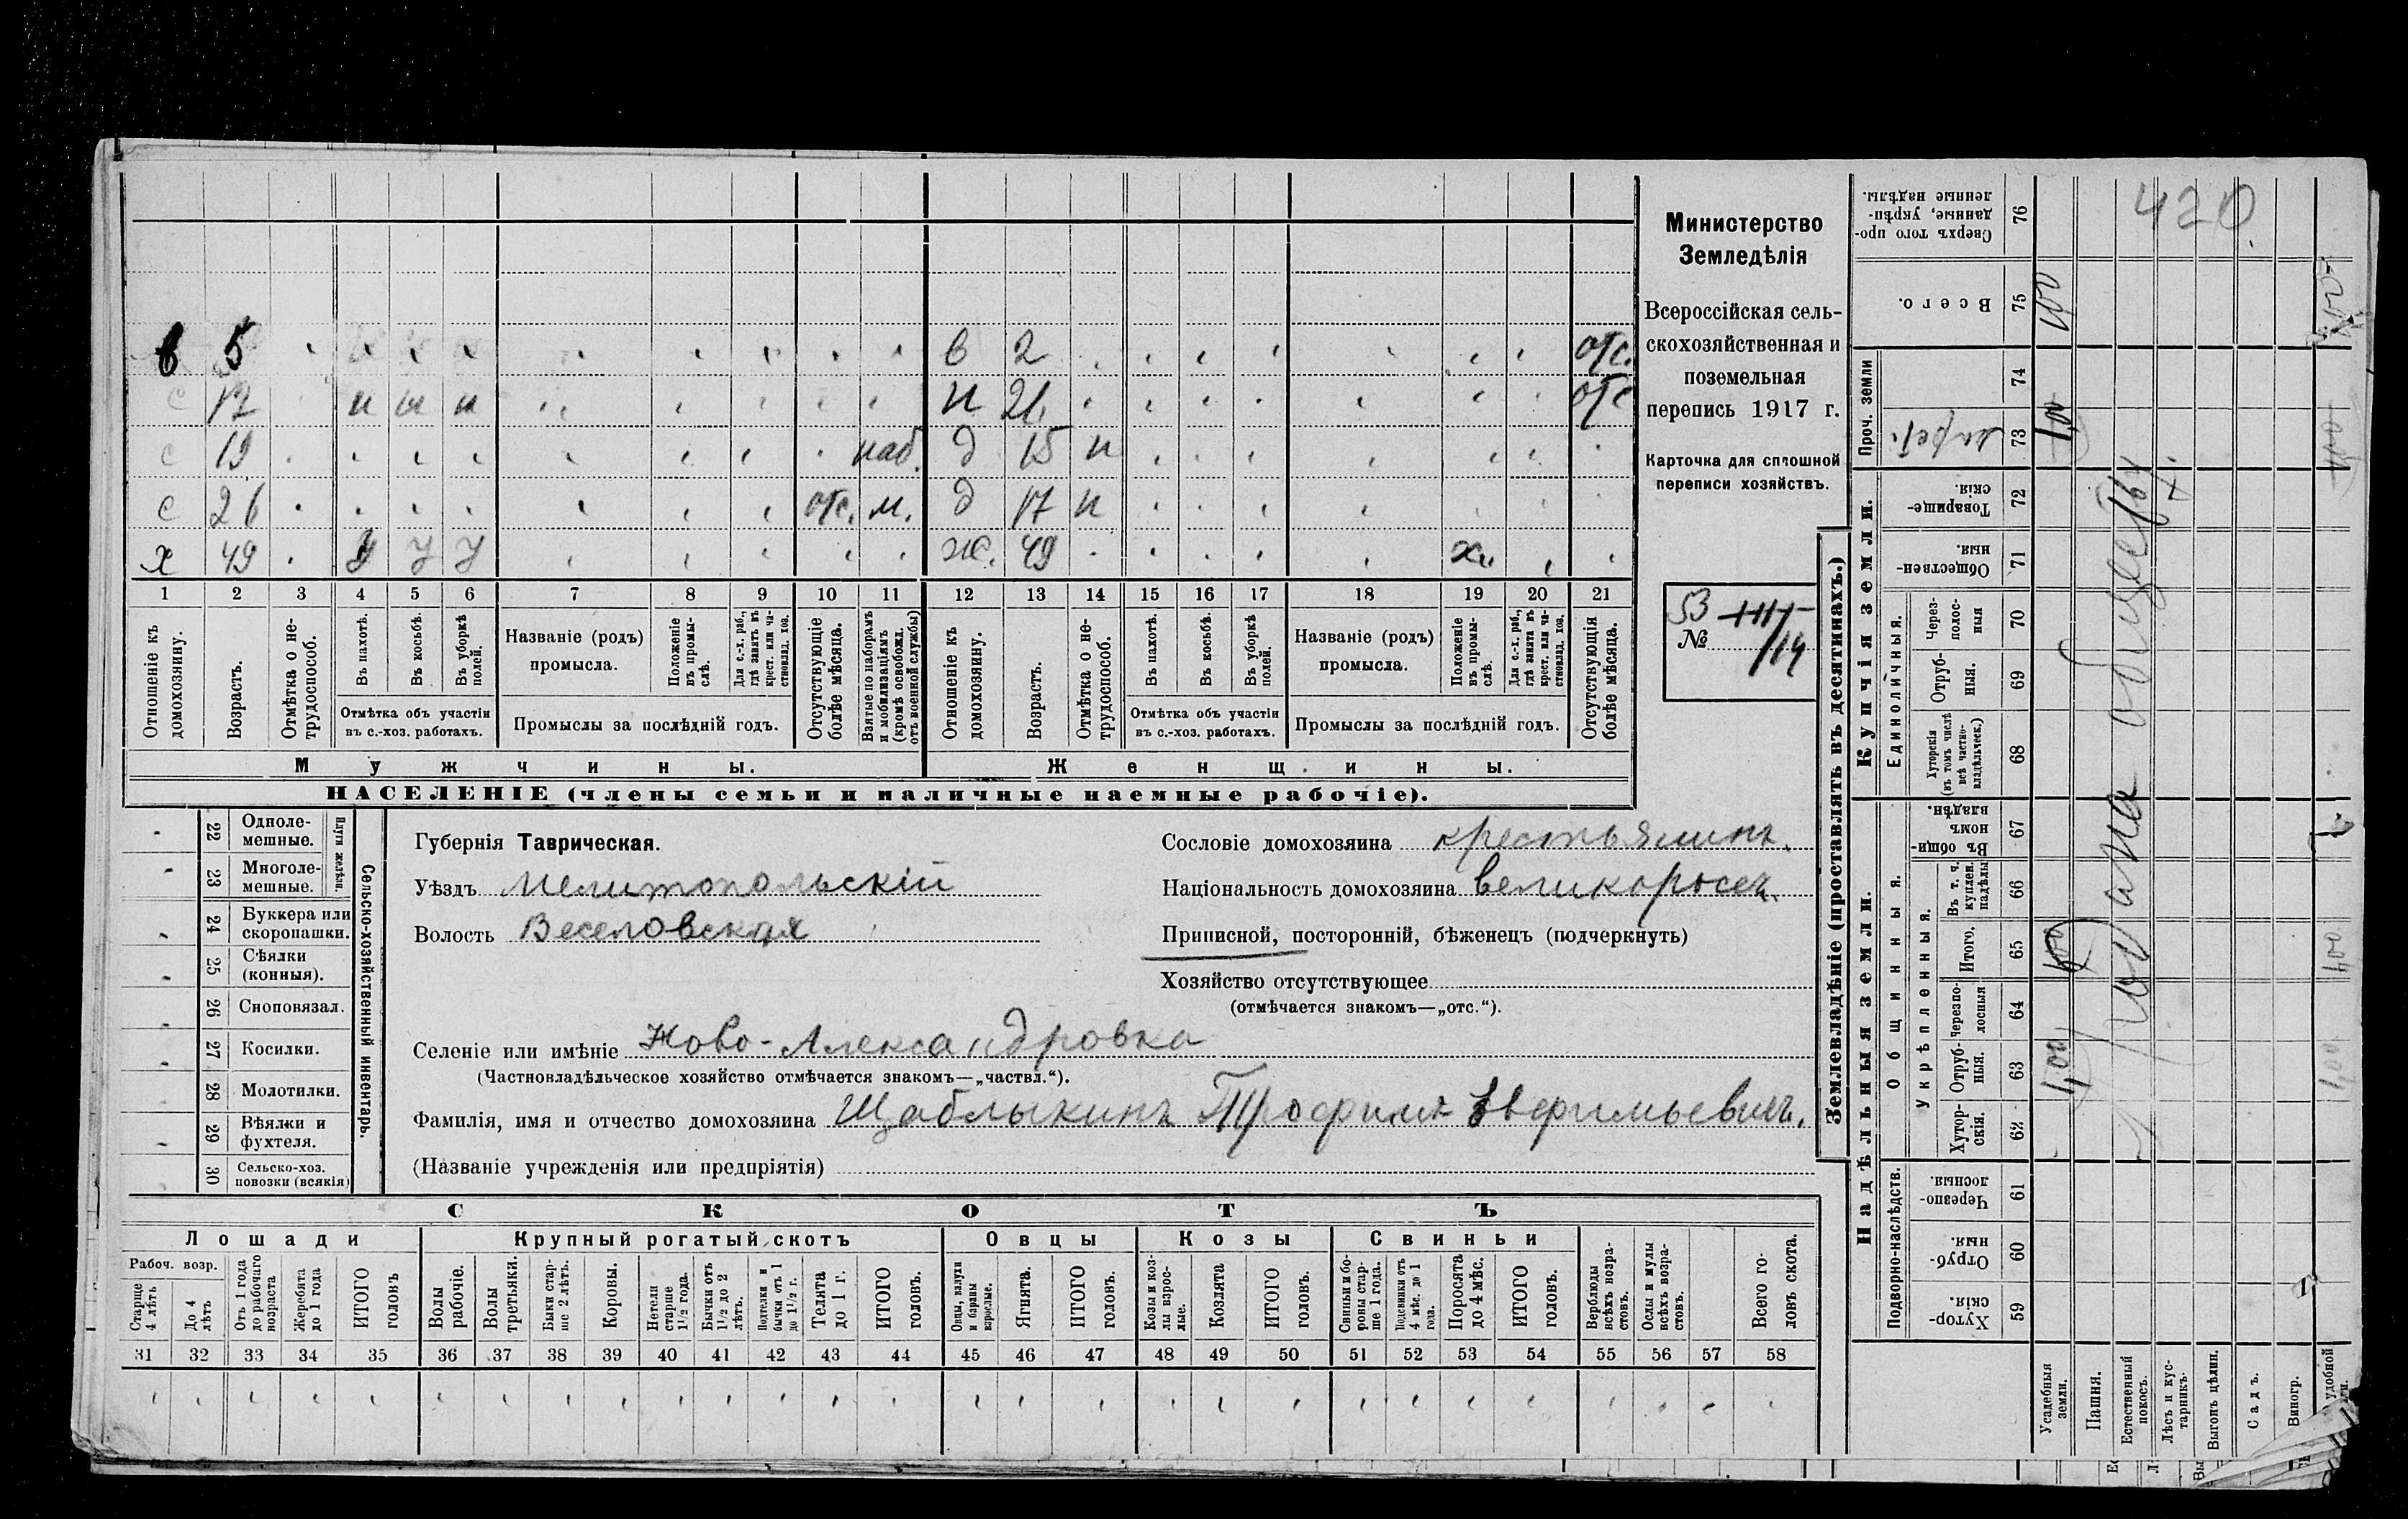 в 5 в 2 отс.
с 12 н н н н 21 отс
с 19 наб. д 15 н
с 26 отс. м. д 17 н
х 49 У У У ж. 49 х.
1 2 3 4 5 6 7 8 9 10 11 12 13 14 15 16 17 18 19 20 21
Отношеніе къ домохозяину.
Возрастъ.
Отмѣтка о нетрудоспособ.
Въ пахотѣ.
Въ косьбѣ.
Въ уборкѣ полей.
Отмѣтка объ участіи
въ с.-хоз. работахъ.
Названіе (родъ)
промысла.
Положеніе въ промыслѣ.
Для с.-х. раб., гдѣ занятъ въ крест. или частновлад. хоз.
Промыслы за послѣдній годъ.
Отсутствующіе болѣе мѣсяца.
Взятые по наборамъ и мобилизаціямъ (кромѣ освобожд. отъ военной службы)
Отношеніе къ домохозяину.
Возрастъ.
Отмѣтка о нетрудоспособ.
Въ пахотѣ.
Въ косьбѣ.
Въ уборкѣ полей.
Отмѣтка объ участіи
въ с.-хоз. работахъ.
Названіе (родъ)
промысла.
Положеніе въ промыслѣ.
Для с.-х. раб., гдѣ занята въ крест. или частновлад. хоз.
Промыслы за послѣдній годъ.
Отсутствующія болѣе мѣсяца.
Мужчины. Женщины.
НАСЕЛЕНІЕ (члены семьи и наличные наемные рабочіе).
Министерство
Земледѣлія
Всероссійская сель-
скохозяйственная и
поземельная
перепись 1917 г.
Карточка для сплошной
переписи хозяйствъ.
53
№ /14
Сельско-хозяйственный инвентарь.
Плуги желѣзн.
22 Одноле-
мешные.
23 Многоле-
мешные.
24 Буккера или
скоропашки.
25 Сѣялки
(конныя).
26 Сноповязал.
27 Косилки.
28 Молотилки.
29 Вѣялки и
фухтеля.
30 Сельско-хоз.
повозки (всякія)
Губернія Таврическая.
Уѣздъ Мелитопольскій
Волость Веселовская
Сословіе домохозяина крестьянинъ.
Національность домохозяина великороссъ.
Приписной, посторонній, бѣженецъ (подчеркнуть)
Хозяйство отсутствующее
(отмѣчается знакомъ—„отс.“).
Селеніе или имѣніе Ново-Александровка
(Частновладѣльческое хозяйство отмѣчается знакомъ—„частвл.“).
Фамилія, имя и отчество домохозяина Щаблыкинъ Трофимъ Евфимьевич.
(Названіе учрежденія или предпріятія)
СКОТЪ
Лошади Крупный рогатый скотъ Овцы Козы Свиньи
Рабоч. возр.
Старше 4 лѣтъ
До 4 лѣтъ
Отъ 1 года до рабочаго возраста
Жеребята до 1 года
ИТОГО головъ
Волы рабочіе.
Волы третьяки.
Быки старше 2 лѣтъ.
Коровы.
Нетели старше 1½ года.
Бычки отъ 1½ до 2 лѣтъ.
Подтелки и бычки отъ 1 до 1½ г.
Телята до 1 г.
ИТОГО головъ.
Овцы, валухи и бараны взрослые.
Ягнята.
ИТОГО головъ.
Козы и козлы взрослые.
Козлята
ИТОГО головъ.
Свиньи и боровы старше 1 года.
Подсвинки отъ 4 мѣс. до 1 года.
Поросята до 4 мѣс.
ИТОГО головъ.
Верблюды всѣхъ возрастовъ.
Ослы и мулы всѣхъ возрастовъ.
Всего головъ скота.
31 32 33 34 35 36 37 38 39 40 41 42 43 44 45 46 47 48 49 50 51 52 53 54 55 56 57 58
Землевладѣніе (проставлять въ десятинахъ.)
Надѣльныя земли. Купчія земли. Проч. земли
Подворно-наслѣдств.
Общинныя.
Укрѣпленныя.
Единоличныя.
59 Хуторскія.
60 Отрубныя.
61 Черезполосныя.
62 Хуторскія.
63 Отрубныя.
64 Черезполосныя
65 Итого.
66 Въ т. ч. куплен. надѣлы
67 Въ общинномъ владѣн.
68 Хуторскія (въ томъ числѣ всѣ частновладѣльческ.)
69 Отрубныя.
70 Черезполосныя
71 Общественныя.
72 Товарищескія.
73
74
75 Всего.
76 Сверхъ того проданные, укрѣпленные надѣлы.
Усадебныя земли.
Пашня.
Естественный покосъ.
Лѣсъ и кустарникъ.
Выгонъ цѣлин.
Садъ.
Виногр.
удобной
420